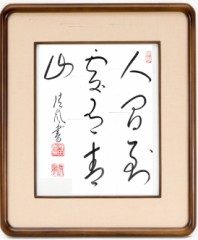 人間到
處有青
山
清風書